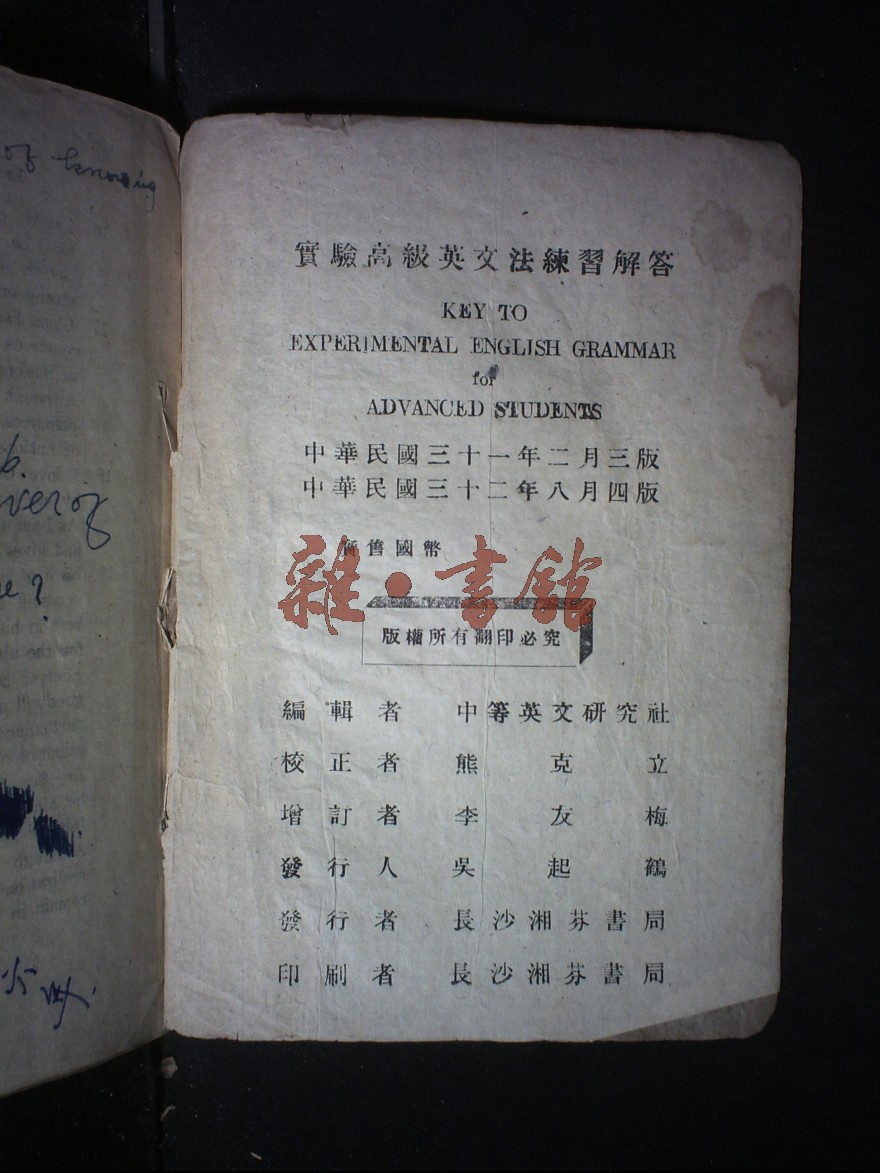 of knowing
實驗高級英文法練習解答
KEY TO
EXPERIMENTAL ENGLISH GRAMMAR
for
ADVANCED STUDENTS
中華民國三十一年二月三版
中華民國三十二年八月四版
舊國幣
雜·書館
版權所有翻印必究
編輯者 中等英文研究社
校正者 熊克立
增訂者 李友梅
發行人 吳起鶴
發行者 長沙湘芬書局
印刷者 長沙湘芬書局